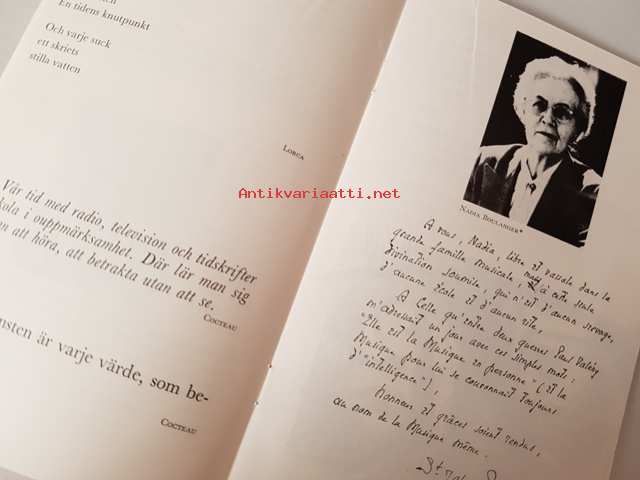 En tidens knutpunkt
Och varje suck
ett skriets
stilla vatten
Lorca
Vår tid med radio, television och tidskrifter
skola i ouppmärksamhet. Där lär man sig
an att höra, att betrakta utan att se.
Cocteau
nsten är varje värde, som be-
Cocteau
Antikvariaatti.net
Nadia Boulanger*
A vous, Nadia, libre et vassale dans la
grande famille musicale, mais à cette seule
divination soumise, qui n'est d'aucun rivage,
d'aucune école et d'aucun rite,
A Celle qu'entre deux guerres Paul Valéry
m'adressait un jour avec ces simples mots:
"Elle est la Musique en personne" (et la
Musique pour lui se couronnait toujours
d'"intelligence"),
honneur et grâces soient rendus,
au nom de la Musique même.